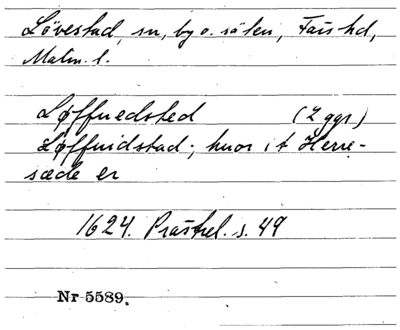 Lövestad, sn, by o. säteri, Färs hd,
Malm. l.
Løffuedsted (2 ggr)
Løffuidstad; huor it Herre-
sæde er
1624. Prästrel. s. 49
Nr 5589.